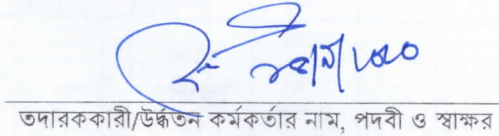 তদারককারী/উর্দ্ধতন কর্মকর্তার নাম, পদবী ও স্বাক্ষর